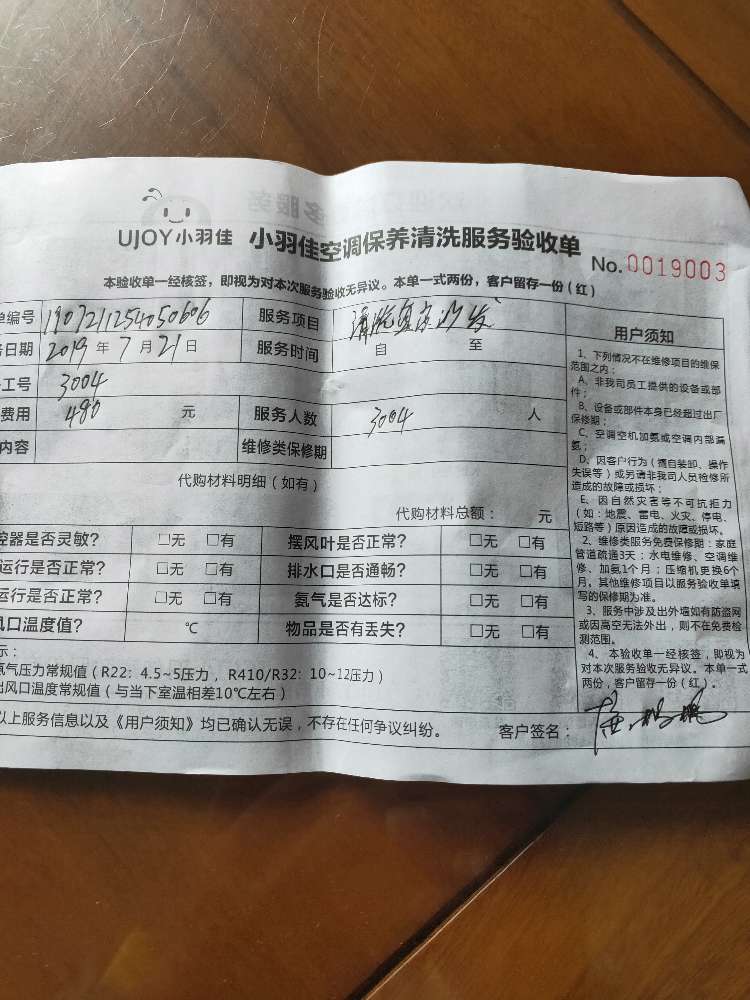 UJOY小羽佳 小羽佳空调保养清洗服务验收单
No.0019003
本验收单一经核签，即视为对本次服务验收无异议。本单一式两份，客户留存一份(红)
单编号 1907211254050606 服务项目 清洗 沙发
日期 2019 年 7 月 21 日 服务时间 自 至
工号 3004
费用 480 元 服务人数 3004 人
内容 维修类保修期
代购材料明细（如有）
代购材料总额： 元
控器是否灵敏? □无 □有 摆风叶是否正常? □无 □有
运行是否正常? □无 □有 排水口是否通畅? □无 □有
运行是否正常? □无 □有 氨气是否达标? □无 □有
风口温度值? ℃ 物品是否有丢失? □无 □有
示：
氨气压力常规值（R22：4.5~5压力，R410/R32：10~12压力）
出风口温度常规值（与当下室温相差10℃左右）
以上服务信息以及《用户须知》均已确认无误，不存在任何争议纠纷。 客户签名：
用户须知
1、下列情况不在维修项目的维保
范围之内：
A、非我司员工提供的设备或部
件；
B、设备或部件本身已经超过出厂
保修期；
C、空调空机加氨或空调内部漏
氨；
D、因客户行为（擅自装卸、操作
失误等）或另请非我司人员检修所
造成的故障或损坏；
E、因自然灾害等不可抗拒力
（如：地震、雷电、火灾、停电、
短路等）原因造成的故障或损坏。
2、维修类服务免费保修期：家庭
管道疏通3天；水电维修、空调维
修、加氨1个月；压缩机更换6个
月。其他维修项目以服务验收单填
写的保修期为准。
3、服务中涉及出外墙如有防盗网
或因高空无法外出，则不在免费检
测范围。
4、本验收单一经核签，即视为
对本次服务验收无异议。本单一式
两份，客户留存一份（红）。